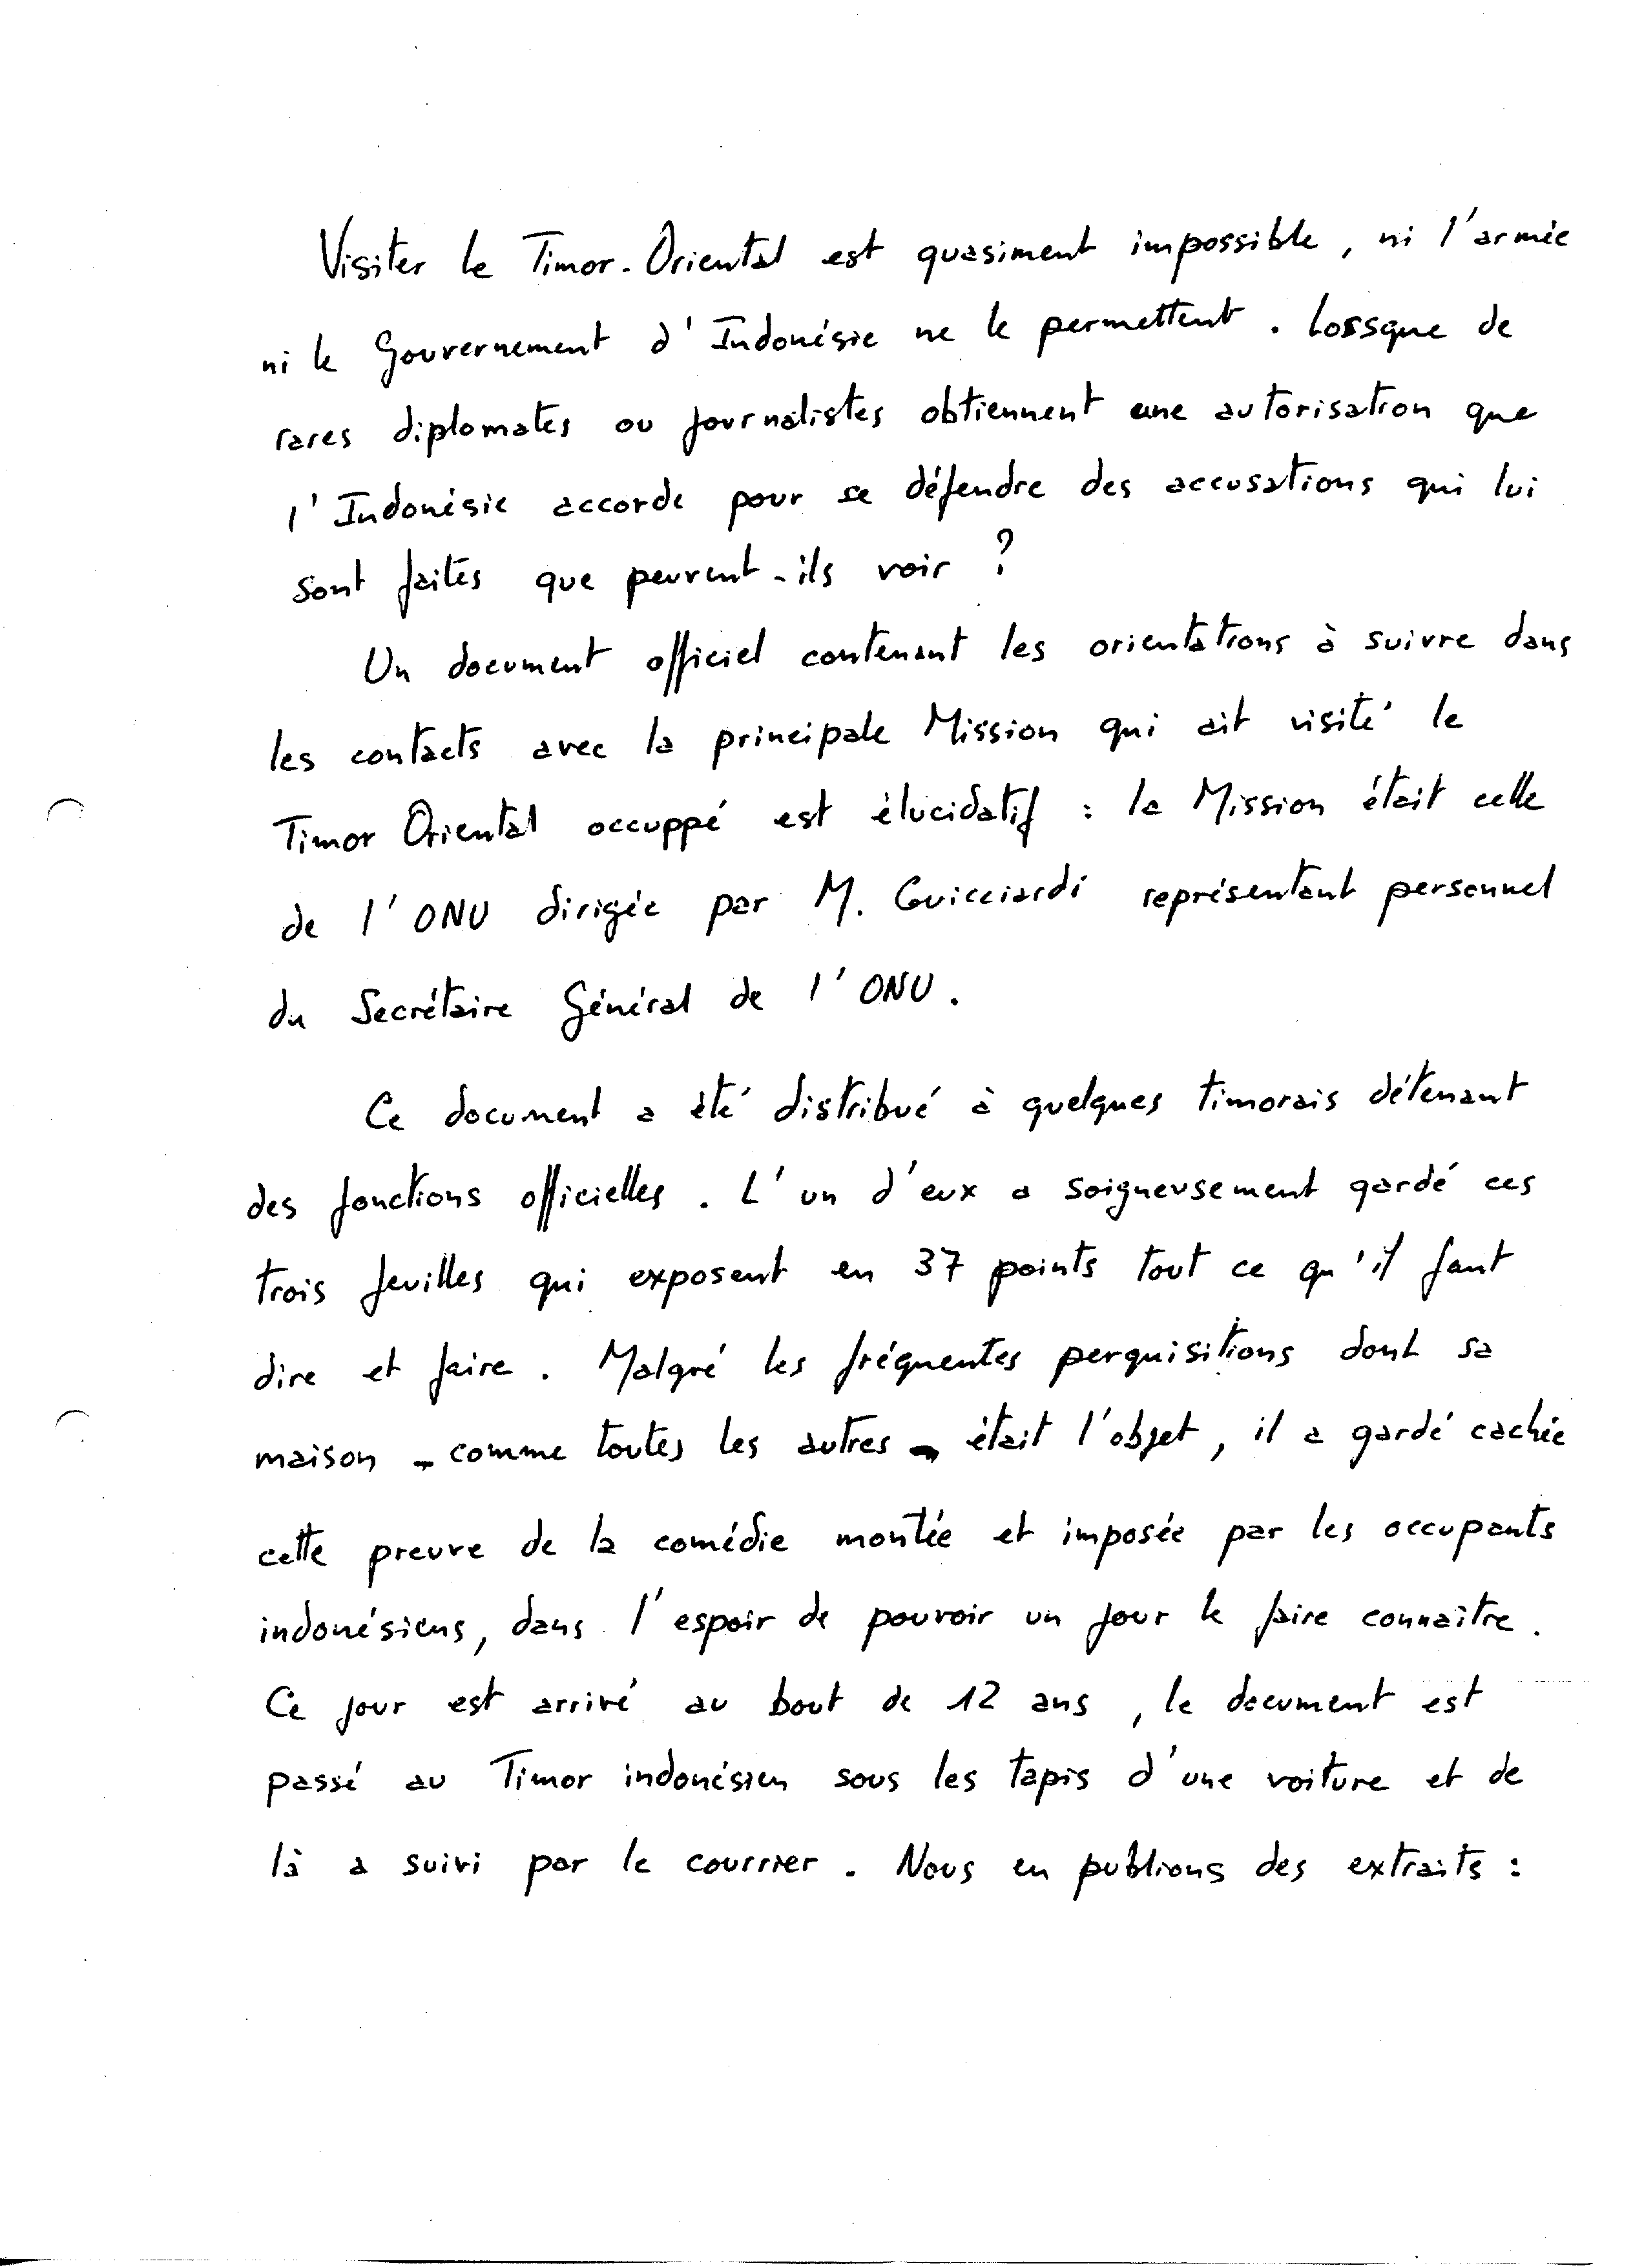 Visiter le Timor-Oriental est quasiment impossible, ni l'armée
ni le Gouvernement d'Indonésie ne le permettent. Lorsque de
rares diplomates ou journalistes obtiennent une autorisation que
l'Indonésie accorde pour se défendre des accusations qui lui
sont faites que peuvent-ils voir ?
Un document officiel contenant les orientations à suivre dans
les contacts avec la principale Mission qui ait visité le
Timor Oriental occuppé est élucidatif : la Mission était celle
de l'ONU dirigée par M. Guicciardi représentant personnel
du Secrétaire Général de l'ONU.
Ce document a été distribué à quelques timorais détenant
des fonctions officielles. L'un d'eux a soigneusement gardé ces
trois feuilles qui exposent en 37 points tout ce qu'il faut
dire et faire. Malgré les fréquentes perquisitions dont sa
maison - comme toutes les autres - était l'objet, il a gardé cachée
cette preuve de la comédie montée et imposée par les occupants
indonésiens, dans l'espoir de pouvoir un jour le faire connaitre.
Ce jour est arrivé au bout de 12 ans, le document est
passé au Timor indonésien sous les tapis d'une voiture et de
là a suivi par le courrier. Nous en publions des extraits :